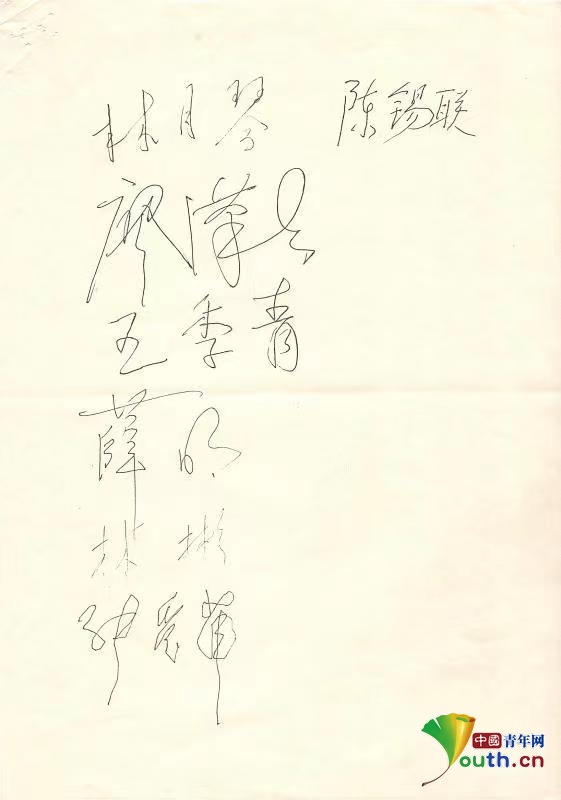 林月琴 陈锡联
廖漢生
王季青
薛明
林彬
中國青年网
Youth.cn